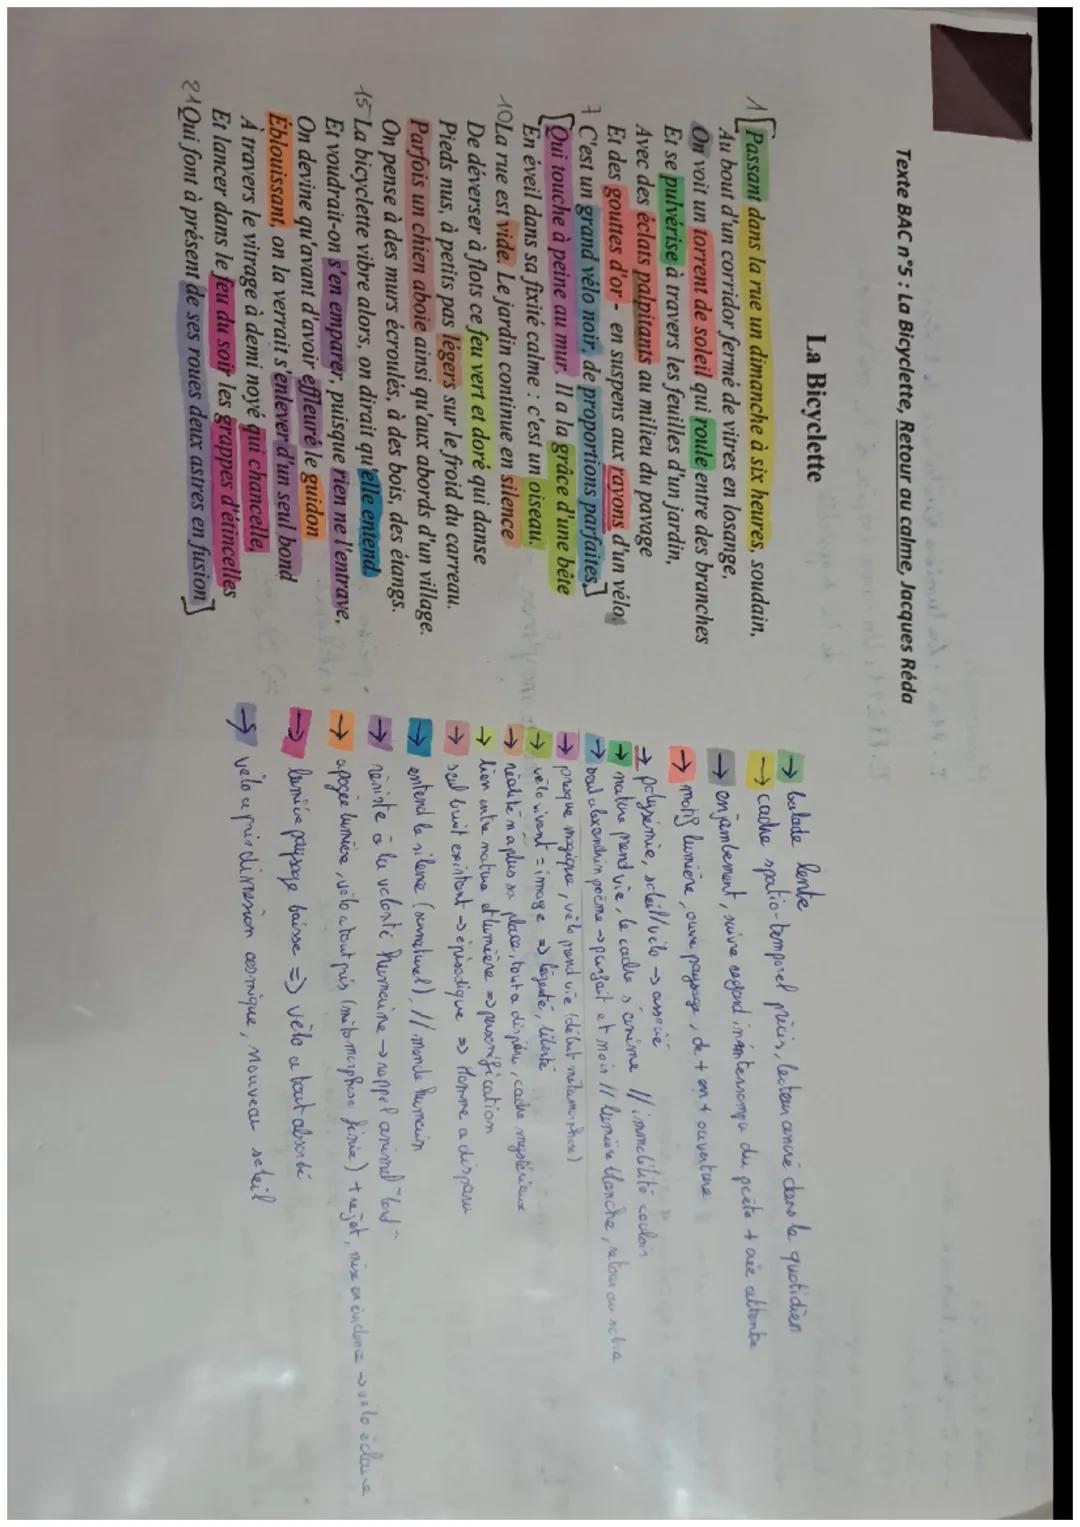 Texte BAC n°5 : La Bicyclette, Retour au calme, Jacques Réda
La Bicyclette
1 [Passant dans la rue un dimanche à six heures, soudain,
Au bout d'un corridor fermé de vitres en losange,
On voit un torrent de soleil qui roule entre des branches
Et se pulvérise à travers les feuilles d'un jardin,
Avec des éclats palpitants au milieu du pavage
Et des gouttes d'or - en suspens aux rayons d'un vélo.
7 C'est un grand vélo noir, de proportions parfaites,]
[Qui touche à peine au mur. Il a la grâce d'une bête
En éveil dans sa fixité calme : c'est un oiseau.
10 La rue est vide. Le jardin continue en silence
De déverser à flots ce feu vert et doré qui danse
Pieds nus, à petits pas légers sur le froid du carreau.
Parfois un chien aboie ainsi qu'aux abords d'un village.
On pense à des murs écroulés, à des bois, des étangs.
15 La bicyclette vibre alors, on dirait qu'elle entend.
Et voudrait-on s'en emparer, puisque rien ne l'entrave,
On devine qu'avant d'avoir effleuré le guidon
Éblouissant, on la verrait s'enlever d'un seul bond
À travers le vitrage à demi noyé qui chancelle,
Et lancer dans le feu du soir les grappes d'étincelles
21 Qui font à présent de ses roues deux astres en fusion]
→ balade lente
→ cadre spatio-temporel précis, lecteur ancré dans le quotidien
→ enjambement, suivre regard ininterrompu du poète + crée attente
→ motif lumière, ouvre paysage, de + en + ouverture
→ polysémie, soleil/vélo → associé
→ nature prend vie, le cadre s'anime // immobilité couloir
→ seul alexandrin poème → parfait et noir // lumière blanche, retour au sobre
→ presque magique, vélo prend vie (début métamorphose)
→ vélo vivant = image => légèreté, liberté
→ réalité n'a plus sa place, tout a disparu, cadre mystérieux
→ lien entre nature et lumière => personnification
→ seul bruit existant → épisodique => Homme a disparu
→ entend le silence (surnaturel) // monde humain
→ résiste à la volonté humaine → rappel animal
→ apogée lumière, vélo a tout pris (métamorphose finie) + rejet, mise en évidence → vélo éclaire
→ lumière paysage baisse => vélo a tout absorbé
→ vélo a pris dimension cosmique, nouveau soleil